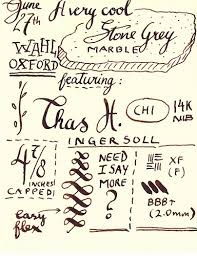 June 27th
A very cool
Stone Grey
MARBLE
WAHL
OXFORD
featuring:
Chas H.
INGERSOLL
CHI
14K
NIB
4 7/8
INCHES
CAPPED!
NEED
I SAY
MORE
?
XF
(F)
BBB+
(2.0mm)
easy
flex